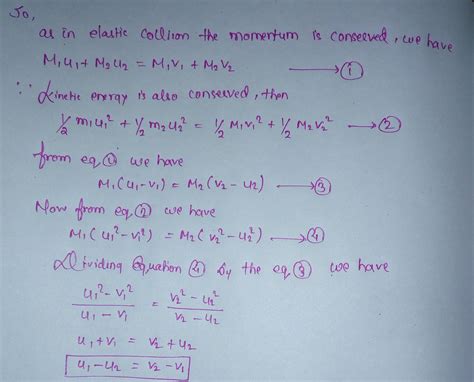 So,
as in elastic collison the momentum is conserved, we have
M₁u₁ + M₂u₂ = M₁V₁ + M₂V₂ → ①
∵ Kinetic energy is also conserved, then
½ m₁u₁² + ½ m₂u₂² = ½ M₁V₁² + ½ M₂V₂² → ②
from eq ① we have
M₁(u₁-v₁) = M₂(v₂-u₂) → ③
Now from eq ② we have
M₁(u₁²-v₁²) = M₂(v₂²-u₂²) → ④
Dividing Equation ④ by the eq ③ we have
(u₁²-v₁²)/(u₁-v₁) = (v₂²-u₂²)/(v₂-u₂)
u₁+v₁ = v₂+u₂
u₁-u₂ = v₂-v₁